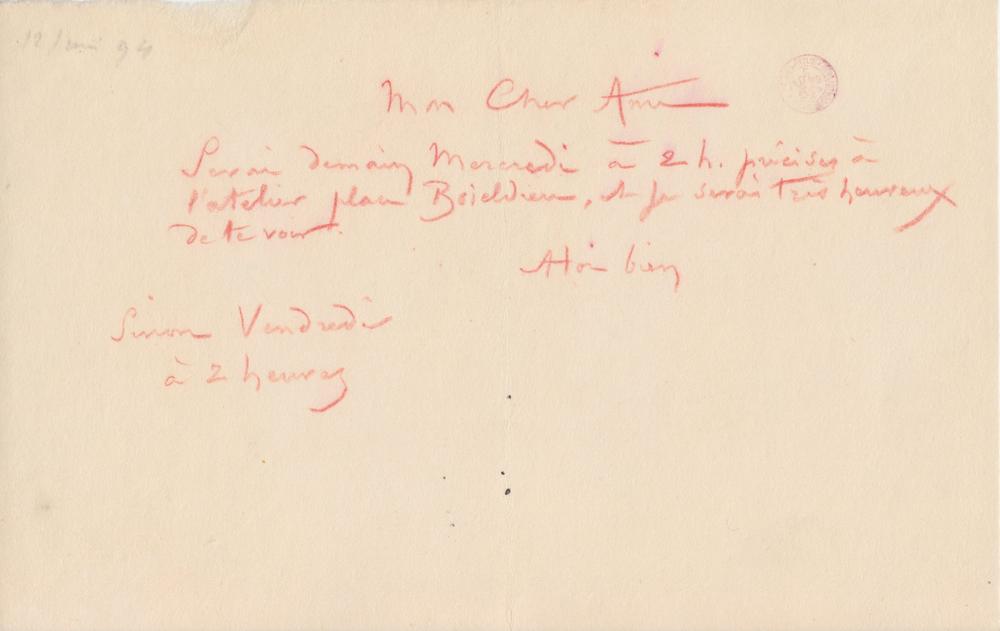 12 mai 94
Mon Cher Ami
Serai demain Mercredi à 2 h. précises à
l'atelier place Boieldieu, et je serais très heureux
de te voir.
A toi bien
Sinon Vendredi
à 2 heures